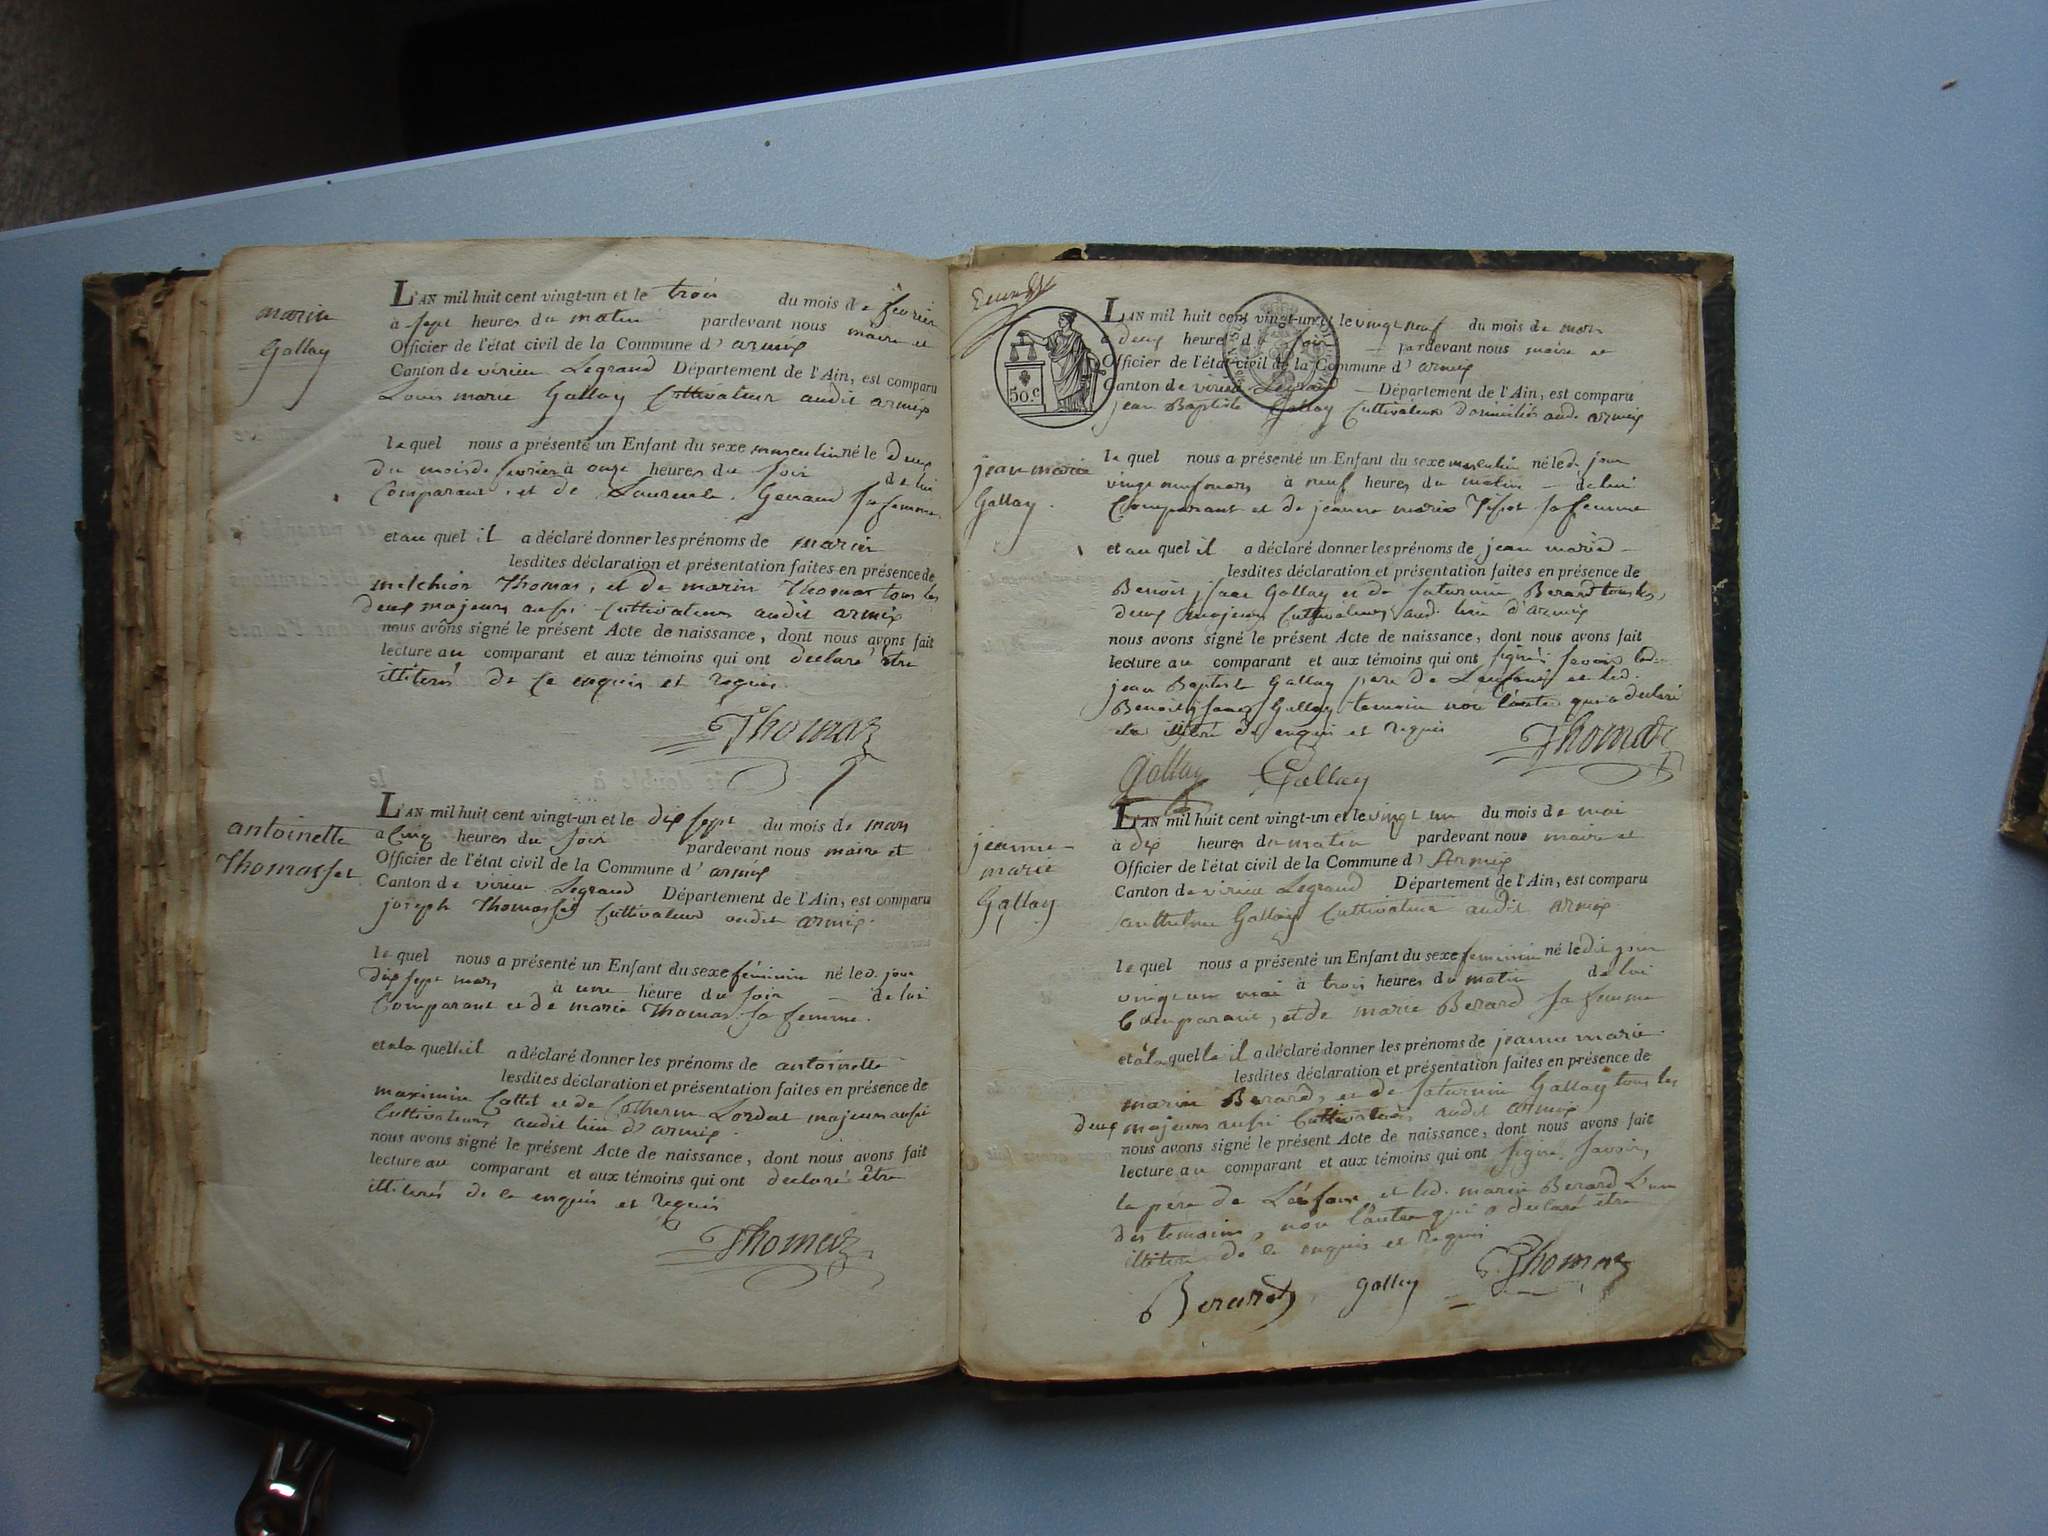 marin
Gallay
L'AN mil huit cent vingt-un et le trois du mois de février
à sept heures du matin pardevant nous maire et
Officier de l'état civil de la Commune d'armix
Canton de virieu Legrand Département de l'Ain, est comparu
Louis marie Gallay Cultivateur audit armix
le quel nous a présenté un Enfant du sexe masculin né le deux
du mois de fevrier à onze heures du soir de lui
Comparant, et de Laurente sa femme
et au quel il a déclaré donner les prénoms de marin
lesdites déclaration et présentation faites en présence de
melchior Thomas, et de marin Thomas tous les
deux majeurs aussi Cultivateurs audit armix
nous avons signé le présent Acte de naissance, dont nous avons fait
lecture au comparant et aux témoins qui ont declaré être
illiterés de ce enquis et requis.
Thomas
antoinette
Thomasset
L'AN mil huit cent vingt-un et le dix sept du mois de mars
à Cinq heures du soir pardevant nous maire et
Officier de l'état civil de la Commune d'armix
Canton de virieu Legrand Département de l'Ain, est comparu
joseph Thomasset Cultivateur audit armix.
le quel nous a présenté un Enfant du sexe féminin né led. jour
dix sept mars à une heure du soir de lui
Comparant et de marie Thomas sa femme.
et a la quelle il a déclaré donner les prénoms de antoinette
lesdites déclaration et présentation faites en présence de
maximin Cottet et de Lordat majeurs aussi
Cultivateurs audit lieu d'armix.
nous avons signé le présent Acte de naissance, dont nous avons fait
lecture au comparant et aux témoins qui ont declaré être
illiterés de ce enquis et requis
Thomas
50.c
L'AN mil huit cent vingt-un et le vingt neuf du mois de mars
à deux heures du soir pardevant nous maire et
Officier de l'état civil de la Commune d'armix
Canton de virieu Legrand Département de l'Ain, est comparu
jean Baptiste Gallay Cultivateur domicilié aud. armix
jean marie
Gallay.
le quel nous a présenté un Enfant du sexe masculin né led. jour
vingt neuf mars à neuf heures du matin de lui
Comparant et de jeanne marie sa femme
et au quel il a déclaré donner les prénoms de jean marie
lesdites déclaration et présentation faites en présence de
Benoit isaac Gallay et de saturnin Berard tous les
deux majeurs Cultivateurs aud. lieu d'armix
nous avons signé le présent Acte de naissance, dont nous avons fait
lecture au comparant et aux témoins qui ont signé savoir led.
jean Baptiste Gallay pere de L'enfant et led.
Benoit isaac Gallay temoin non l'autre qui a declaré
être illitéré de enquis et requis
Thomas
Gallay Gallay
jeanne
marie
Gallay
L'AN mil huit cent vingt-un et le vingt un du mois de mai
à dix heures du matin pardevant nous maire et
Officier de l'état civil de la Commune d'Armix
Canton de virieu Legrand Département de l'Ain, est comparu
anthelme Gallay Cultivateur audit armix
le quel nous a présenté un Enfant du sexe feminin né ledit jour
vingt un mai à trois heures du matin de lui
Comparant, et de marie Berard sa femme
et à la quelle il a déclaré donner les prénoms de jeanne marie.
lesdites déclaration et présentation faites en présence de
marin Berard, et de saturnin Gallay tous les
deux majeurs aussi Cultivateurs audit armix
nous avons signé le présent Acte de naissance, dont nous avons fait
lecture au comparant et aux témoins qui ont signé, savoir,
le père de L'enfant et led. marin Berard L'un
des temoins, non l'autre qui a declaré être
illitéré de ce enquis et requis
Berard Gallay Thomas